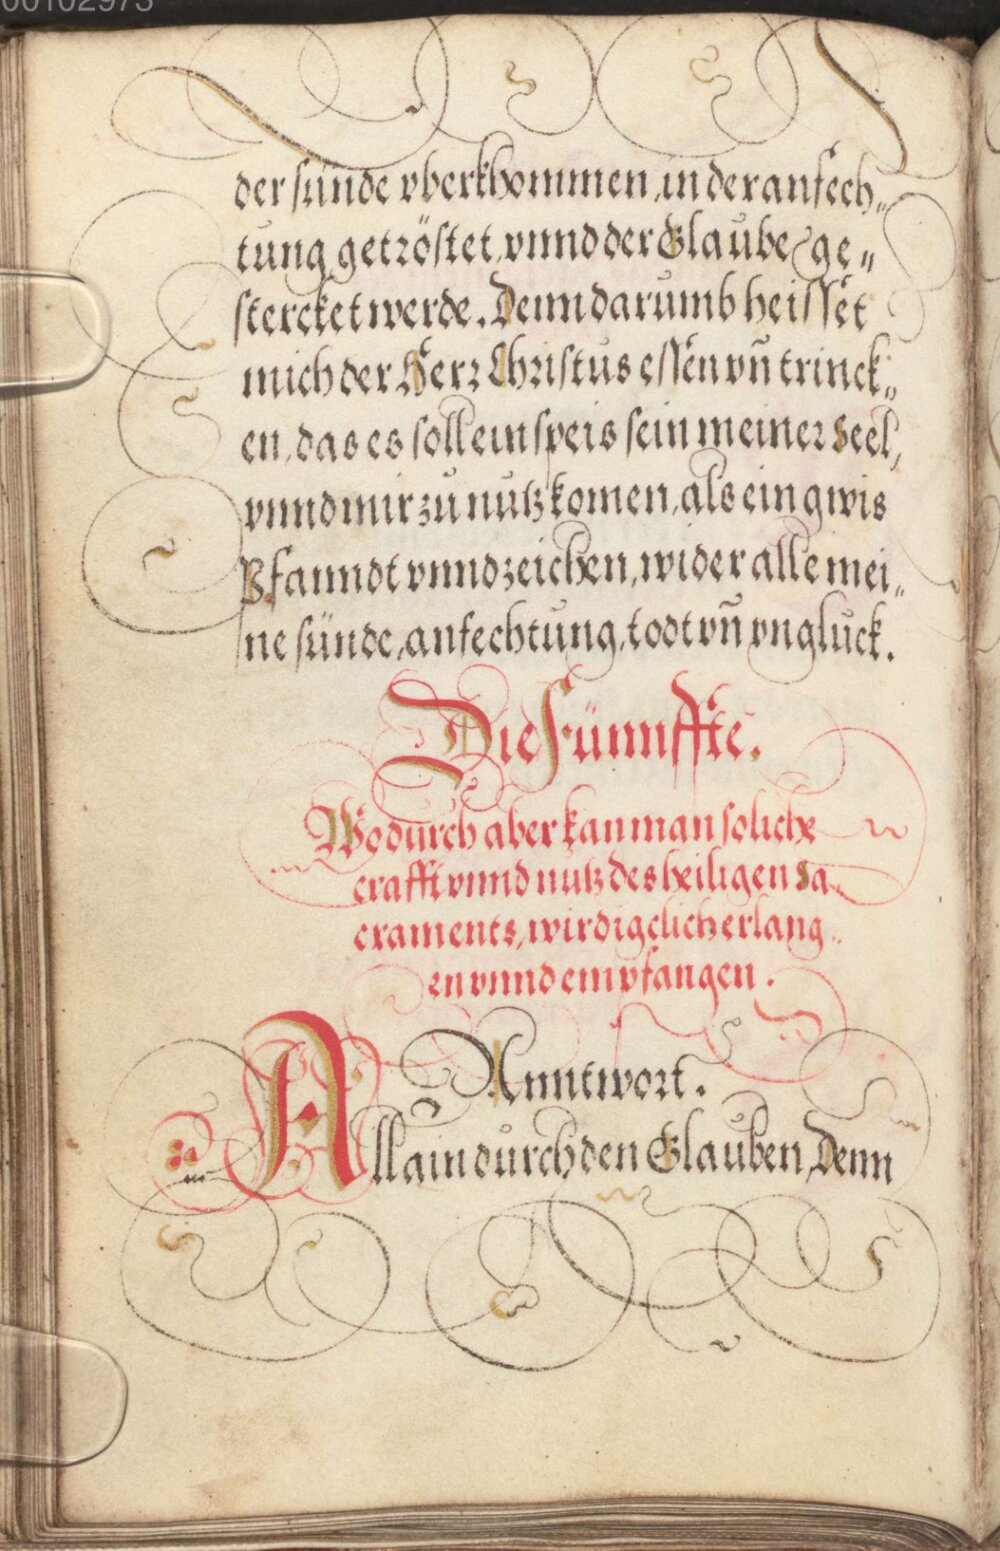 00102973
der sünde vberkhommen, in der anfech„
tung getröstet, vnnd der Glaube ge„
stercket werde. Denn darumb heisset
mich der Herr Christus essen vn̄ trinck„
en, das es soll ein speis sein meiner Seel,
vnnd mir zu nutz komen, als ein gwis
Pfanndt vnnd zeichen, wider alle mei„
ne sünde, anfechtung, todt vn̄ vngluck.
Die Fünnffte.
Wodurch aber kan man soliche
crafft vnnd nutz des heiligen Sa„
craments, wirdigclich erlang„
en vnnd empfangen.
Anntwort.
Allain durch den Glauben, Denn